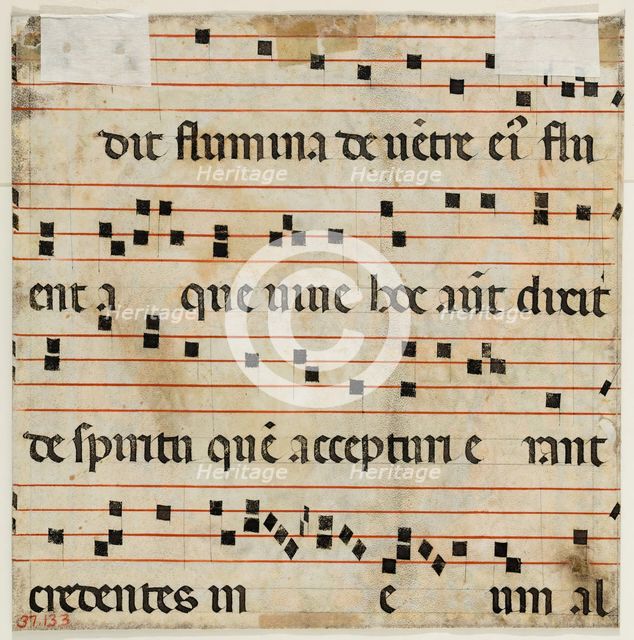 dit flumina de uētre ei⁹ flu
ent aque uiue hoc aūt dixit
de spiritu quē accepturi e rant
credentes in e um al
37.133
Heritage Heritage
Heritage Heritage
Heritage Heritage
Heritage Heritage
©